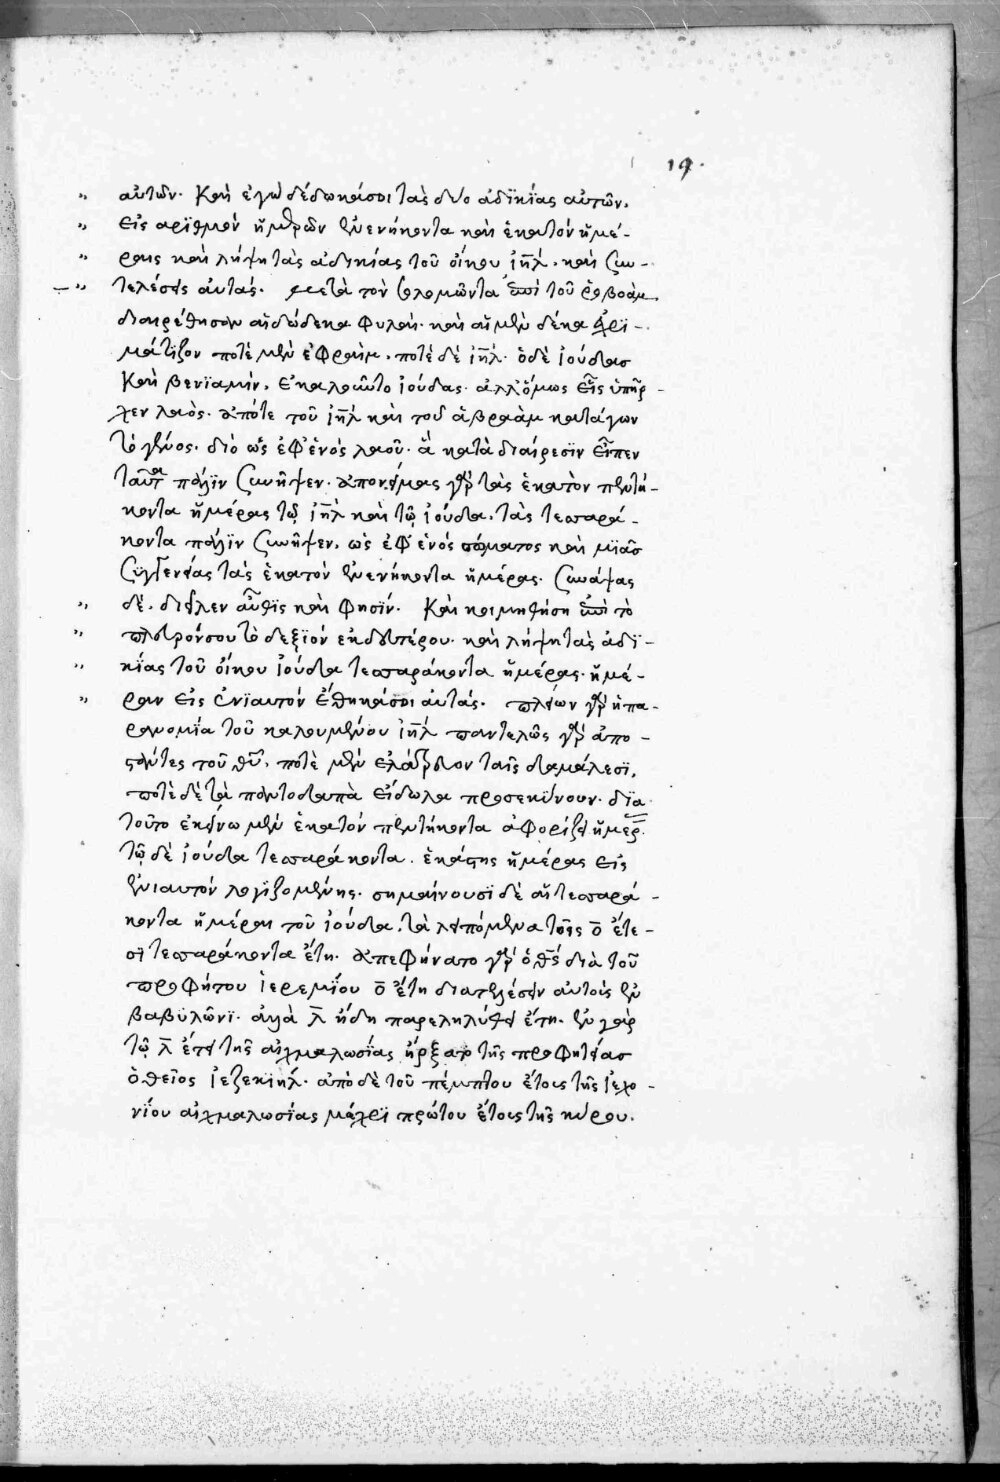 19.
" αὐτῶν. Καὶ ἐγὼ δέδωκά σοι τὰς δύο ἀδικίας αὐτῶν,
" εἰς ἀριθμὸν ἡμερῶν ἐνενήκοντα καὶ ἑκατὸν ἡμέ-
" ραις καὶ λήψῃ τὰς ἀδικίας τοῦ οἴκου ἰη̅λ. καὶ συν-
" τελέσεις αὐτάς. μετὰ τὸν σολομῶντα ἐπὶ τοῦ ῥοβοὰμ
διαιρέθησαν αἱ δώδεκα φυλαί. καὶ αἱ μὲν δέκα ἐχρη-
μάτιζον ποτὲ μὲν ἐφραὶμ, ποτὲ δὲ ἰη̅λ. ὁ δὲ ἰούδας
καὶ βενϊαμὶν, ἐκαλοῦντο ἰούδας. ἀλλ' ὅμως εἷς ὑπῆρ-
χεν λαὸς. ἅποτε τοῦ ἰη̅λ καὶ τοῦ ἀβραὰμ κατάγων
τὸ γένος. διὸ ὡς ἐφ' ἑνὸς λαοῦ. ἃ κατὰ διαίρεσϊν εἶπεν
ταῦτα πάλϊν συνῆψεν. ἀπονείμας γὰρ τὰς ἑκατὸν πεντή-
κοντα ἡμέρας τῷ ἰη̅λ καὶ τῷ ἰούδα, τὰς τεσσαρά-
κοντα πάλϊν συνῆψεν, ὡς ἐφ' ἑνὸς σώματος καὶ μϊᾶς
συγγενείας τὰς ἑκατὸν ἐνενήκοντα ἡμέρας. συνάψας
" δὲ. διεῖλεν αὖθϊς καὶ φησϊν. Καὶ κοιμηθήσῃ ἐπὶ τὸ
" πλευρόν σου τὸ δεξϊὸν ἐκ δευτέρου. καὶ λήψῃ τὰς ἀδϊ-
" κίας τοῦ οἴκου ἰούδα τεσσαράκοντα ἡμέρας. ἡμέ-
" ραν εἰς ἐνϊαυτὸν ἔθηκά σοι αὐτάς. πλείων γὰρ ἡ πα-
ρανομία τοῦ καλουμένου ἰη̅λ παντελῶς γὰρ ἀπο-
στάντες τοῦ θ̅υ̅, ποτὲ μὲν ἐλάτρευον ταῖς δαμάλεσϊ,
ποτὲ δὲ τὰ παντοδαπὰ εἴδωλα προσεκύνουν. δϊὰ
τοῦτο ἐκείνω μὲν ἑκατὸν πεντήκοντα ἀφορίζει ἡμέρ.
τῷ δὲ ἰούδα τεσσαράκοντα. ἑκάστης ἡμέρας εἰς
ἐνιαυτὸν λογϊζομένης. σημαίνουσϊ δὲ αἱ τεσσαρά-
κοντα ἡμέραι τοῦ ἰούδα, τὰ λειπόμενα τοῖς ο̅ ἔτε-
σϊ τεσσαράκοντα ἔτη. ἀπεφήνατο γὰρ ὁ θ̅ς̅ διὰ τοῦ
προφήτου ἱερεμΐου ο̅ ἔτη διατελέσειν αὐτοὺς ἐν
βαβυλῶνϊ. ἀλλὰ λ̅ ἤδη παρεληλύθει ἔτη. ἐν γὰρ
τῷ λ̅ ἔτει τῆς αἰχμαλωσίας ἤρξατο τῆς προφητείας
ὁ θεῖος ἰεζεκϊήλ. ἀπὸ δὲ τοῦ πέμπτου ἔτους τῆς ἰεχο-
νΐου αἰχμαλωσίας μέχρϊ πρώτου ἔτους τῆς κύρου.